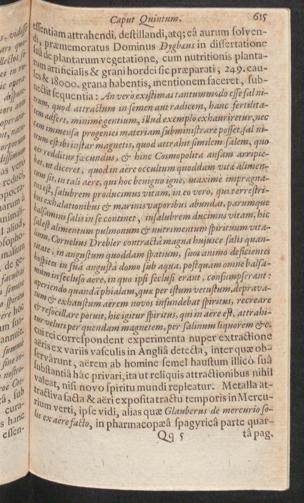 Caput Quintum. 615
essentiam attrahendi, destillandi, atq; eâ aurum solven-
di, præmemoratus Dominus Dygbæus in dissertatione
suâ de plantarum vegetatione, cum nutritionis planta-
rum artificialis & grani hordei sic præparati, 249. cau-
les & 18000. grana habentis, mentionem faceret, sub-
nectit sequentia: An verò existimas tantummodo esse sal ni-
trum, quod attractum in semen aut radicem, hanc fertilita-
tem adfert, minime gentium, illud exemplo exhauriretur, nec
tam immensa progenies materiam subministrare posset. sal ni-
trum est ibi instar magnetis, quod attrahit similem salem, quo
aer redditur fæcundus, & hinc Cosmopolita ansam arripie-
bat, ut diceret, quod in aëre occultum quoddam vitæ alimen-
tum sit. in tali aëre, qui hoc benigno igne, maximè imprægna-
tus est, salubrem producimus vitam, in eo vero, qui terrestri-
bus exhalationibus & marinis vaporibus abundat, parumque
balsamini salis in se continet, insalubrem ducimus vitam, hic
sal est alimentum pulmonum & nutrimentum spirituum vita-
lium. Cornelius Drebler contractâ magna hujusce salis quan-
titate, in angustum quoddam spatium, suos animo deficientes
hospites in suâ angustâ domo sub aqua, postquam omne balsa-
mum in sicluso aere, in quo ipsi seclusi erant, consumpserant:
aperiendo quandam phialam, quæ per æstum vetustum, deprava-
tum & exhaustum aerem novos infundebat spiritus, recreare
& refocillare potuit, hic igitur spiritus, qui in aëre est, attrahi-
tur velut per quendam magnetem, per salinum liquorem &c.
cui rei correspondent experimenta nuper extractione
aëris ex variis vasculis in Angliâ detecta, inter quæ ob-
servârunt, aërem ab homine semel haustum illicò suâ
substantiâ hâc privari, ita ut reliquis attractionibus nihil
valeat, nisi novo spiritu mundi repleatur. Metalla at-
tractiva facta & aëri exposita tractu temporis in Mercu-
rium verti, ipse vidi, alias quæ Glauberus de mercurio so-
lis ex aere facto, in pharmacopæâ spagyricâ parte quar-
Qq 5 tâ pag.